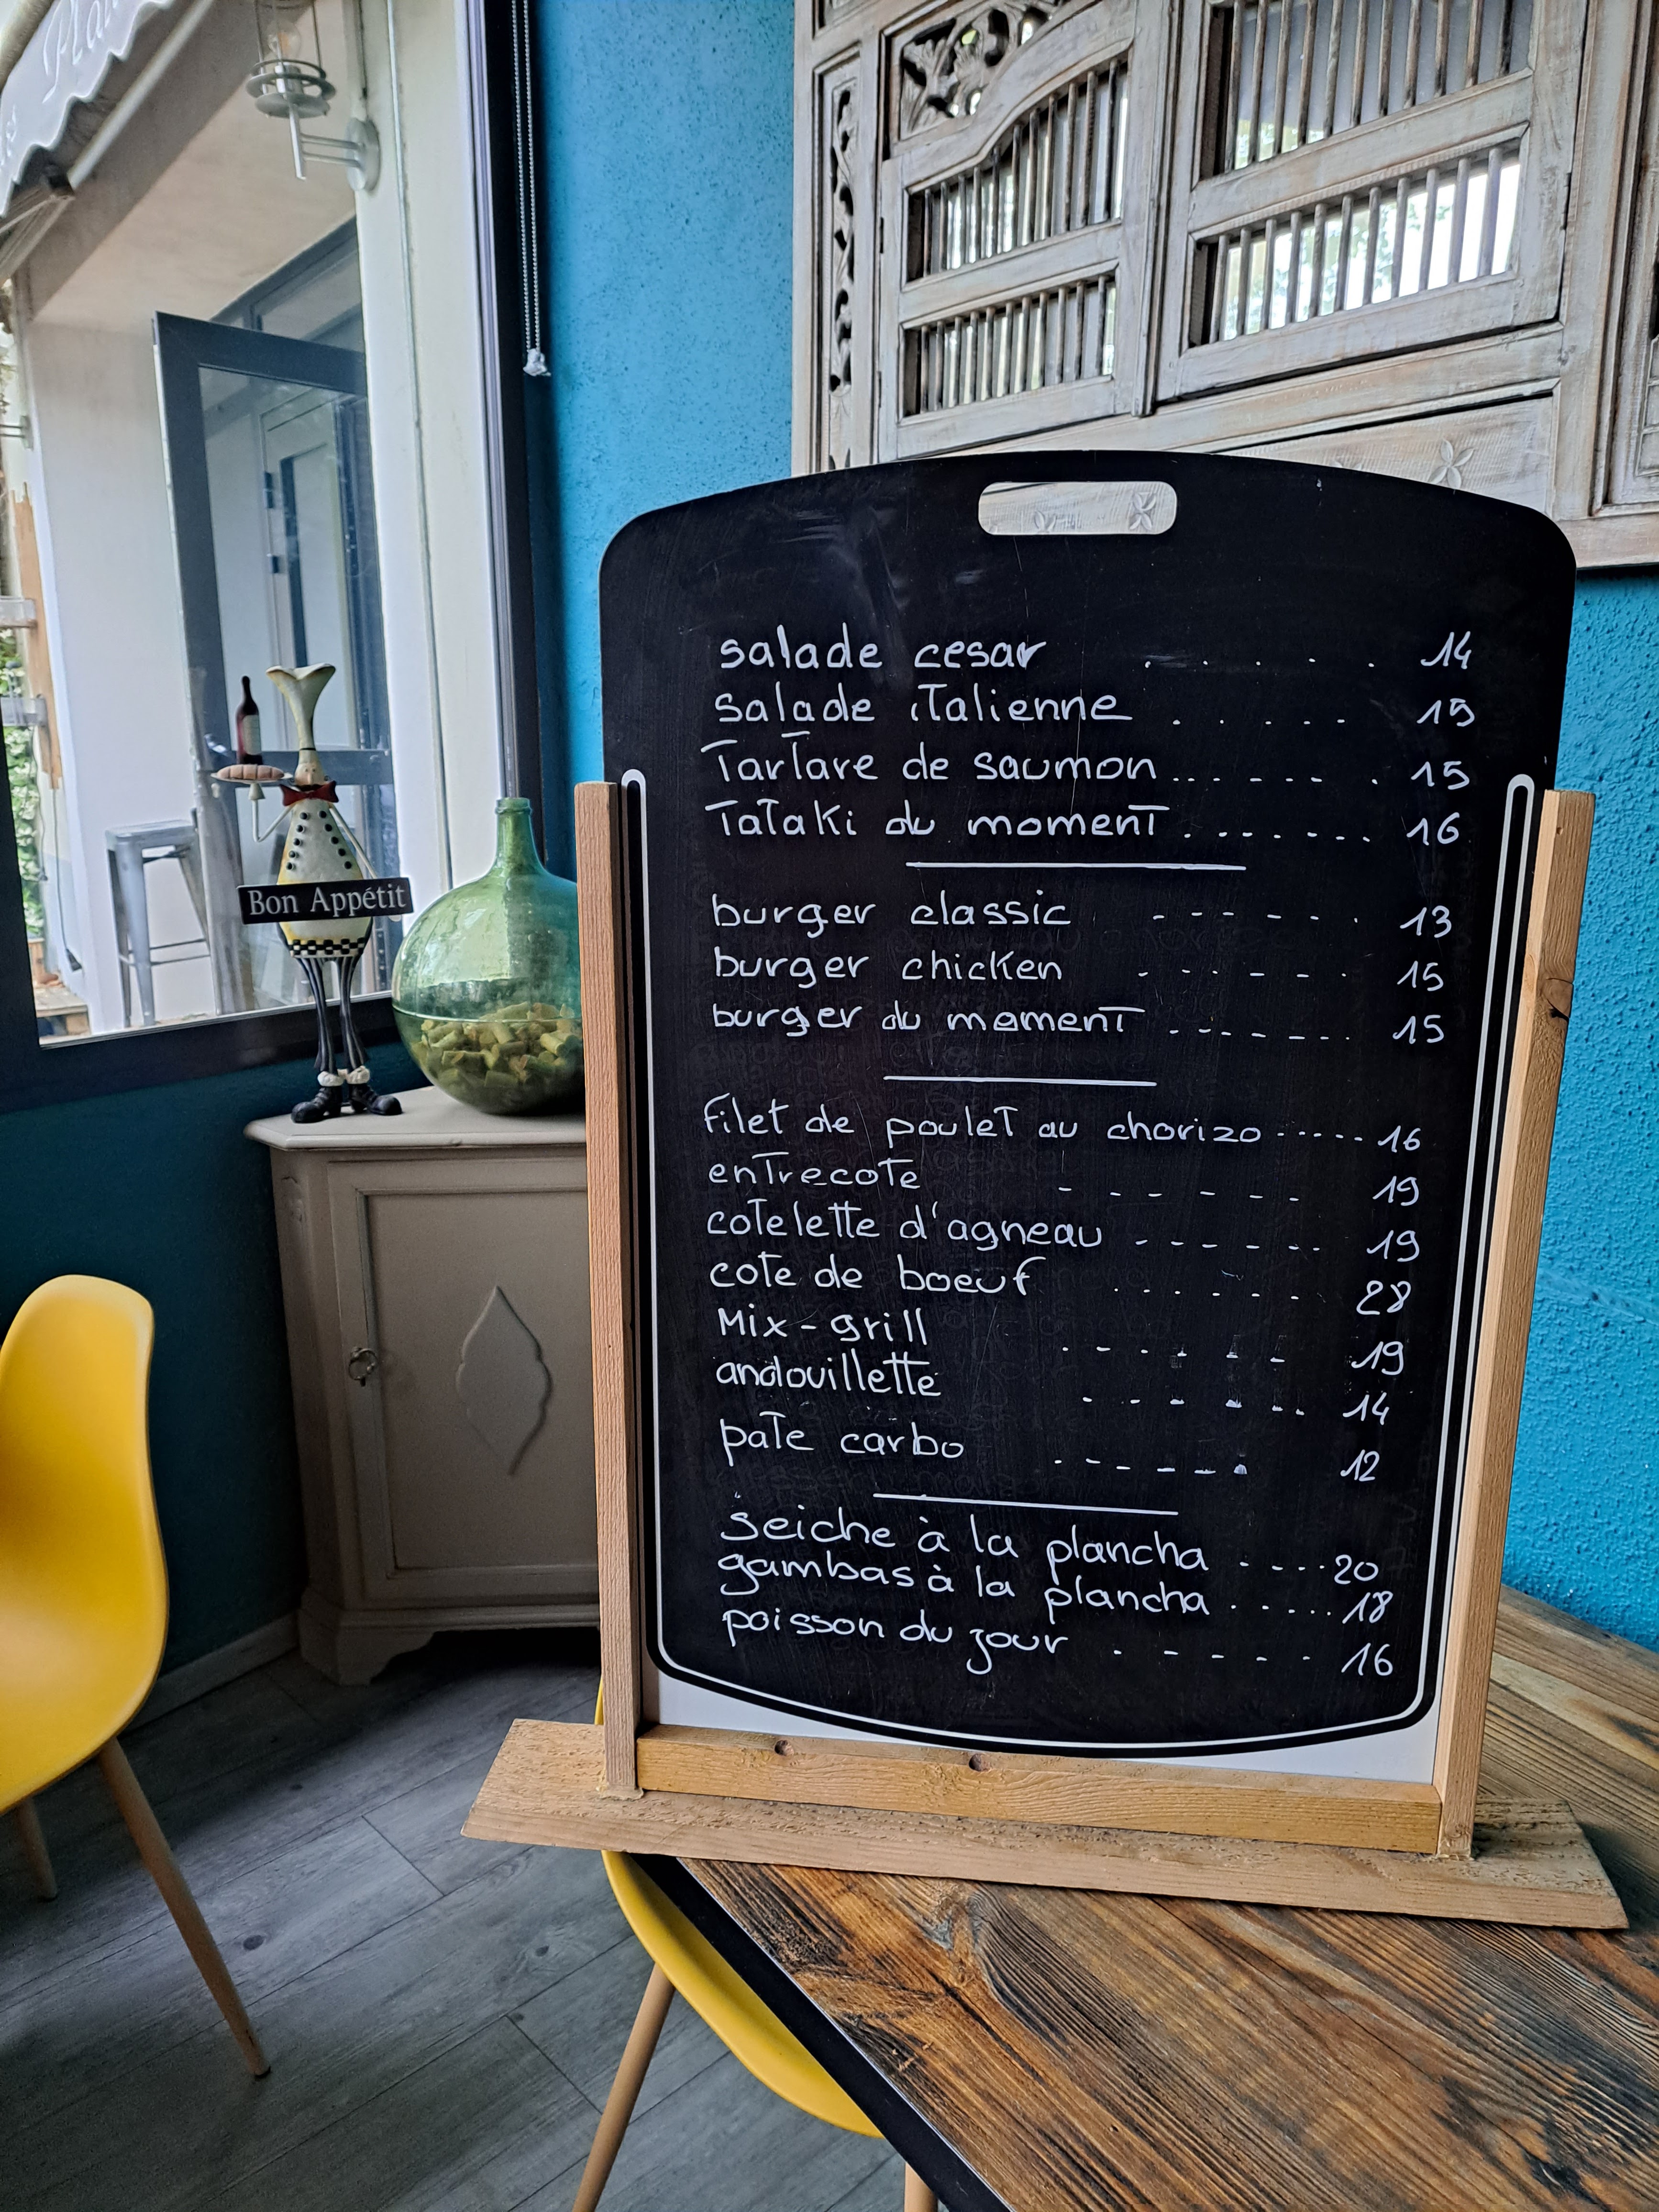 Pla
Bon Appétit
salade cesar . . . . . 14
salade italienne . . . . . 15
Tartare de saumon . . . . . . . 15
Tataki du moment . . . . . . . 16
burger classic - - - - - . 13
burger chicken - - - - - . 15
burger du moment - - - - - - 15
filet de poulet au chorizo - - - - - 16
entrecote - - - - - - 19
cotelette d'agneau - - - - - - 19
cote de boeuf . . . . . . 28
Mix-grill . - - - - 19
andouillette - - - - - 14
pate carbo . - - - - - 12
seiche à la plancha - . . . . 20
gambas à la plancha . . . . . 18
poisson du jour . - - - - 16